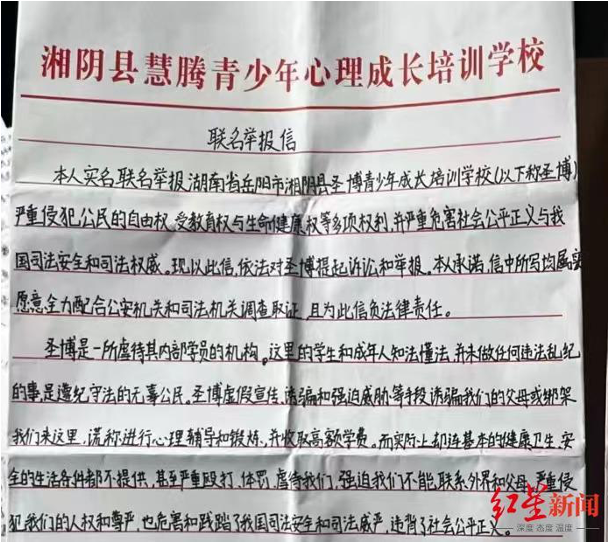 湘阴县慧腾青少年心理成长培训学校
联名举报信
本人实名联名举报湖南省岳阳市湘阴县圣博青少年成长培训学校(以下称圣博)
严重侵犯公民的自由权、受教育权与生命健康权等多项权利,并严重危害社会公平正义与我
国司法安全和司法权威。现以此信,依法对圣博提起诉讼和举报。本人承诺,信中所写均属实
愿意全力配合公安机关和司法机关调查取证,且为此信负法律责任。
圣博是一所虐待其内部学员的机构。这里的学生和成年人知法懂法,并未做任何违法乱纪
的事,是遵纪守法的无辜公民。圣博虚假宣传、诱骗和强迫威胁等手段诱骗我们的父母或绑架
我们来这里,谎称进行心理辅导和锻炼,并收取高额学费。而实际上却连基本的健康卫生、安
全的生活条件都不提供,甚至严重殴打、体罚、虐待我们,强迫我们不能联系外界和父母,严重侵
犯我们的人权和尊严,也危害和践踏了我国司法安全和司法威严,违背了社会公平正义。
红星新闻
深度 态度 温度